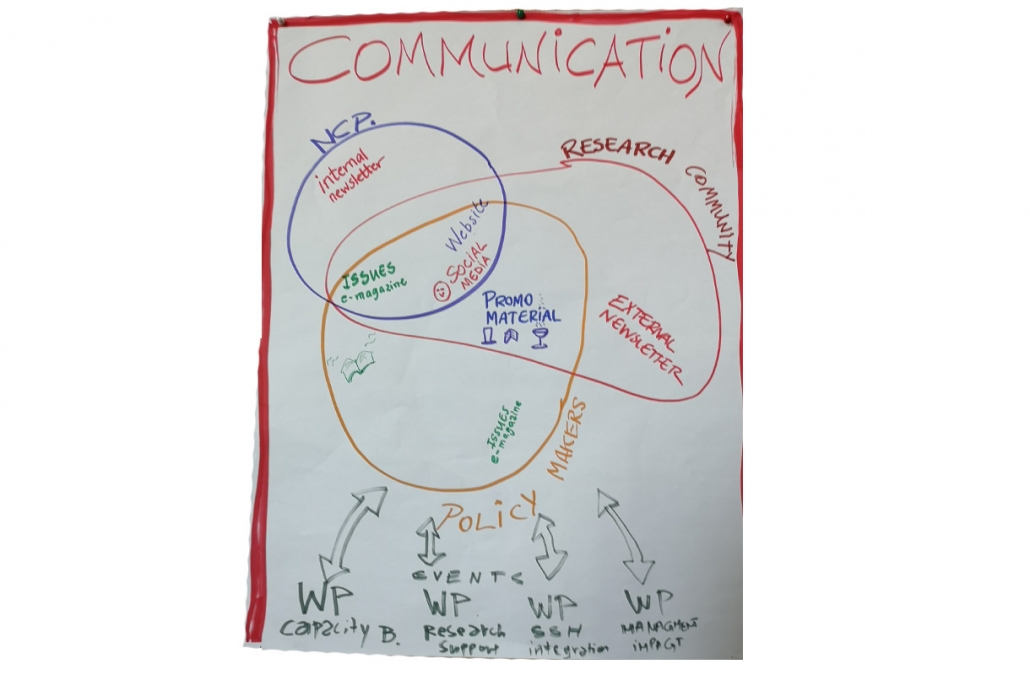 COMMUNICATION
NCP.
internal
newsletter
RESEARCH COMMUNITY
Website
SOCIAL
MEDIA
ISSUES
e-magazine
PROMO
MATERIAL
EXTERNAL
NEWSLETTER
ISSUES
e-magazine
POLICY MAKERS
EVENTS
WP
Capacity B.
WP
Research
Support
WP
SSH
integration
WP
MANAGMENT
iMPACT